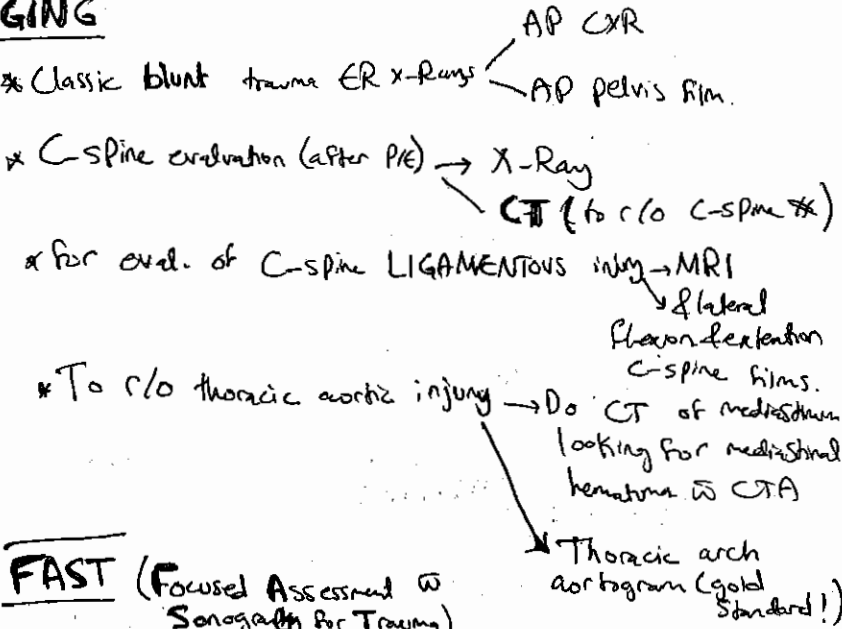 GING
* Classic blunt trauma ER X-Rays
AP CXR
AP pelvis film.
* C-spine evalvation (after P/E) → X-Ray
CT (to r/o C-spine #)
* for eval. of C-spine LIGAMENTOUS injury → MRI
& lateral
flexion & extention
C-spine films.
* To r/o thoracic aortic injury → Do CT of mediastinum
looking for mediastinal
hematoma w̄ CTA
Thoracic arch
aortogram (gold
Standard!)
FAST (Focused Assessment w̄
Sonography for Trauma)